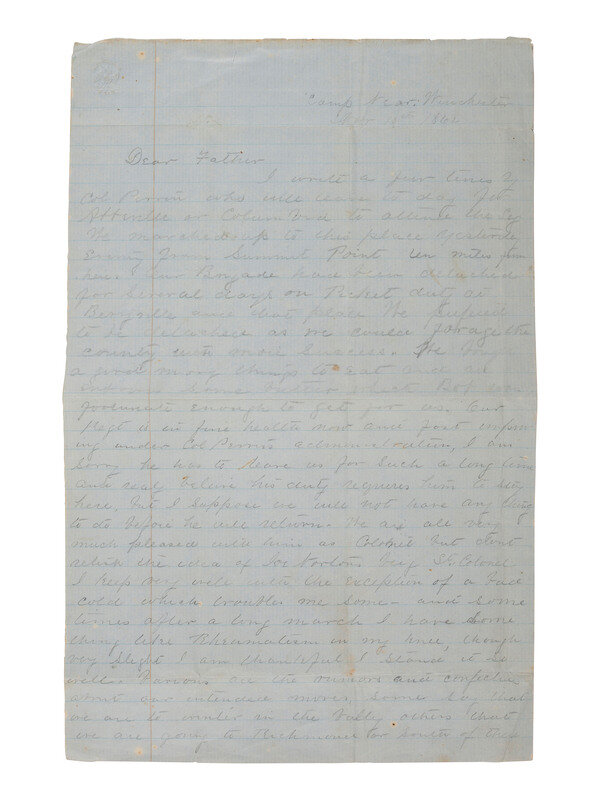 Camp Near Winchester
Nov 1862
Dear Father
I write a few lines by
Col Perrin who will leave to day for
Abbeville or Columbia to attend the
We marched up to this place yesterday
Evening from Summit Point ten miles from
here. Our Brigade have been detached
for several days on Picket duty at
Berryville and that place We prefered
to be detached as we could forage the
country with more success. We bought
a good many things to eat and an
some butter which Bob was
fortunate enough to get for us. Our
Regt is in fine health now and fast improv
ing under Col Perrins administration, I am
sorry he has to leave us for such a long time
and really believe his duty requires him to stay
here, but I suppose we will not have any thing
to do before he will return. We are all very
much pleased with him as Colonel but dont
relish the idea of Joe Nortons being Lt. Colonel
I keep very well with the exception of a bad
cold which troubles me some and some
times after a long march I have some
thing like Rheumatism in my knee, though
very slight I am thankful I stand it so
well. Various are the rumors and conjectures
about our intended moves, some say that
we are to winter in the Vally others that
we are going to Richmond or South of there